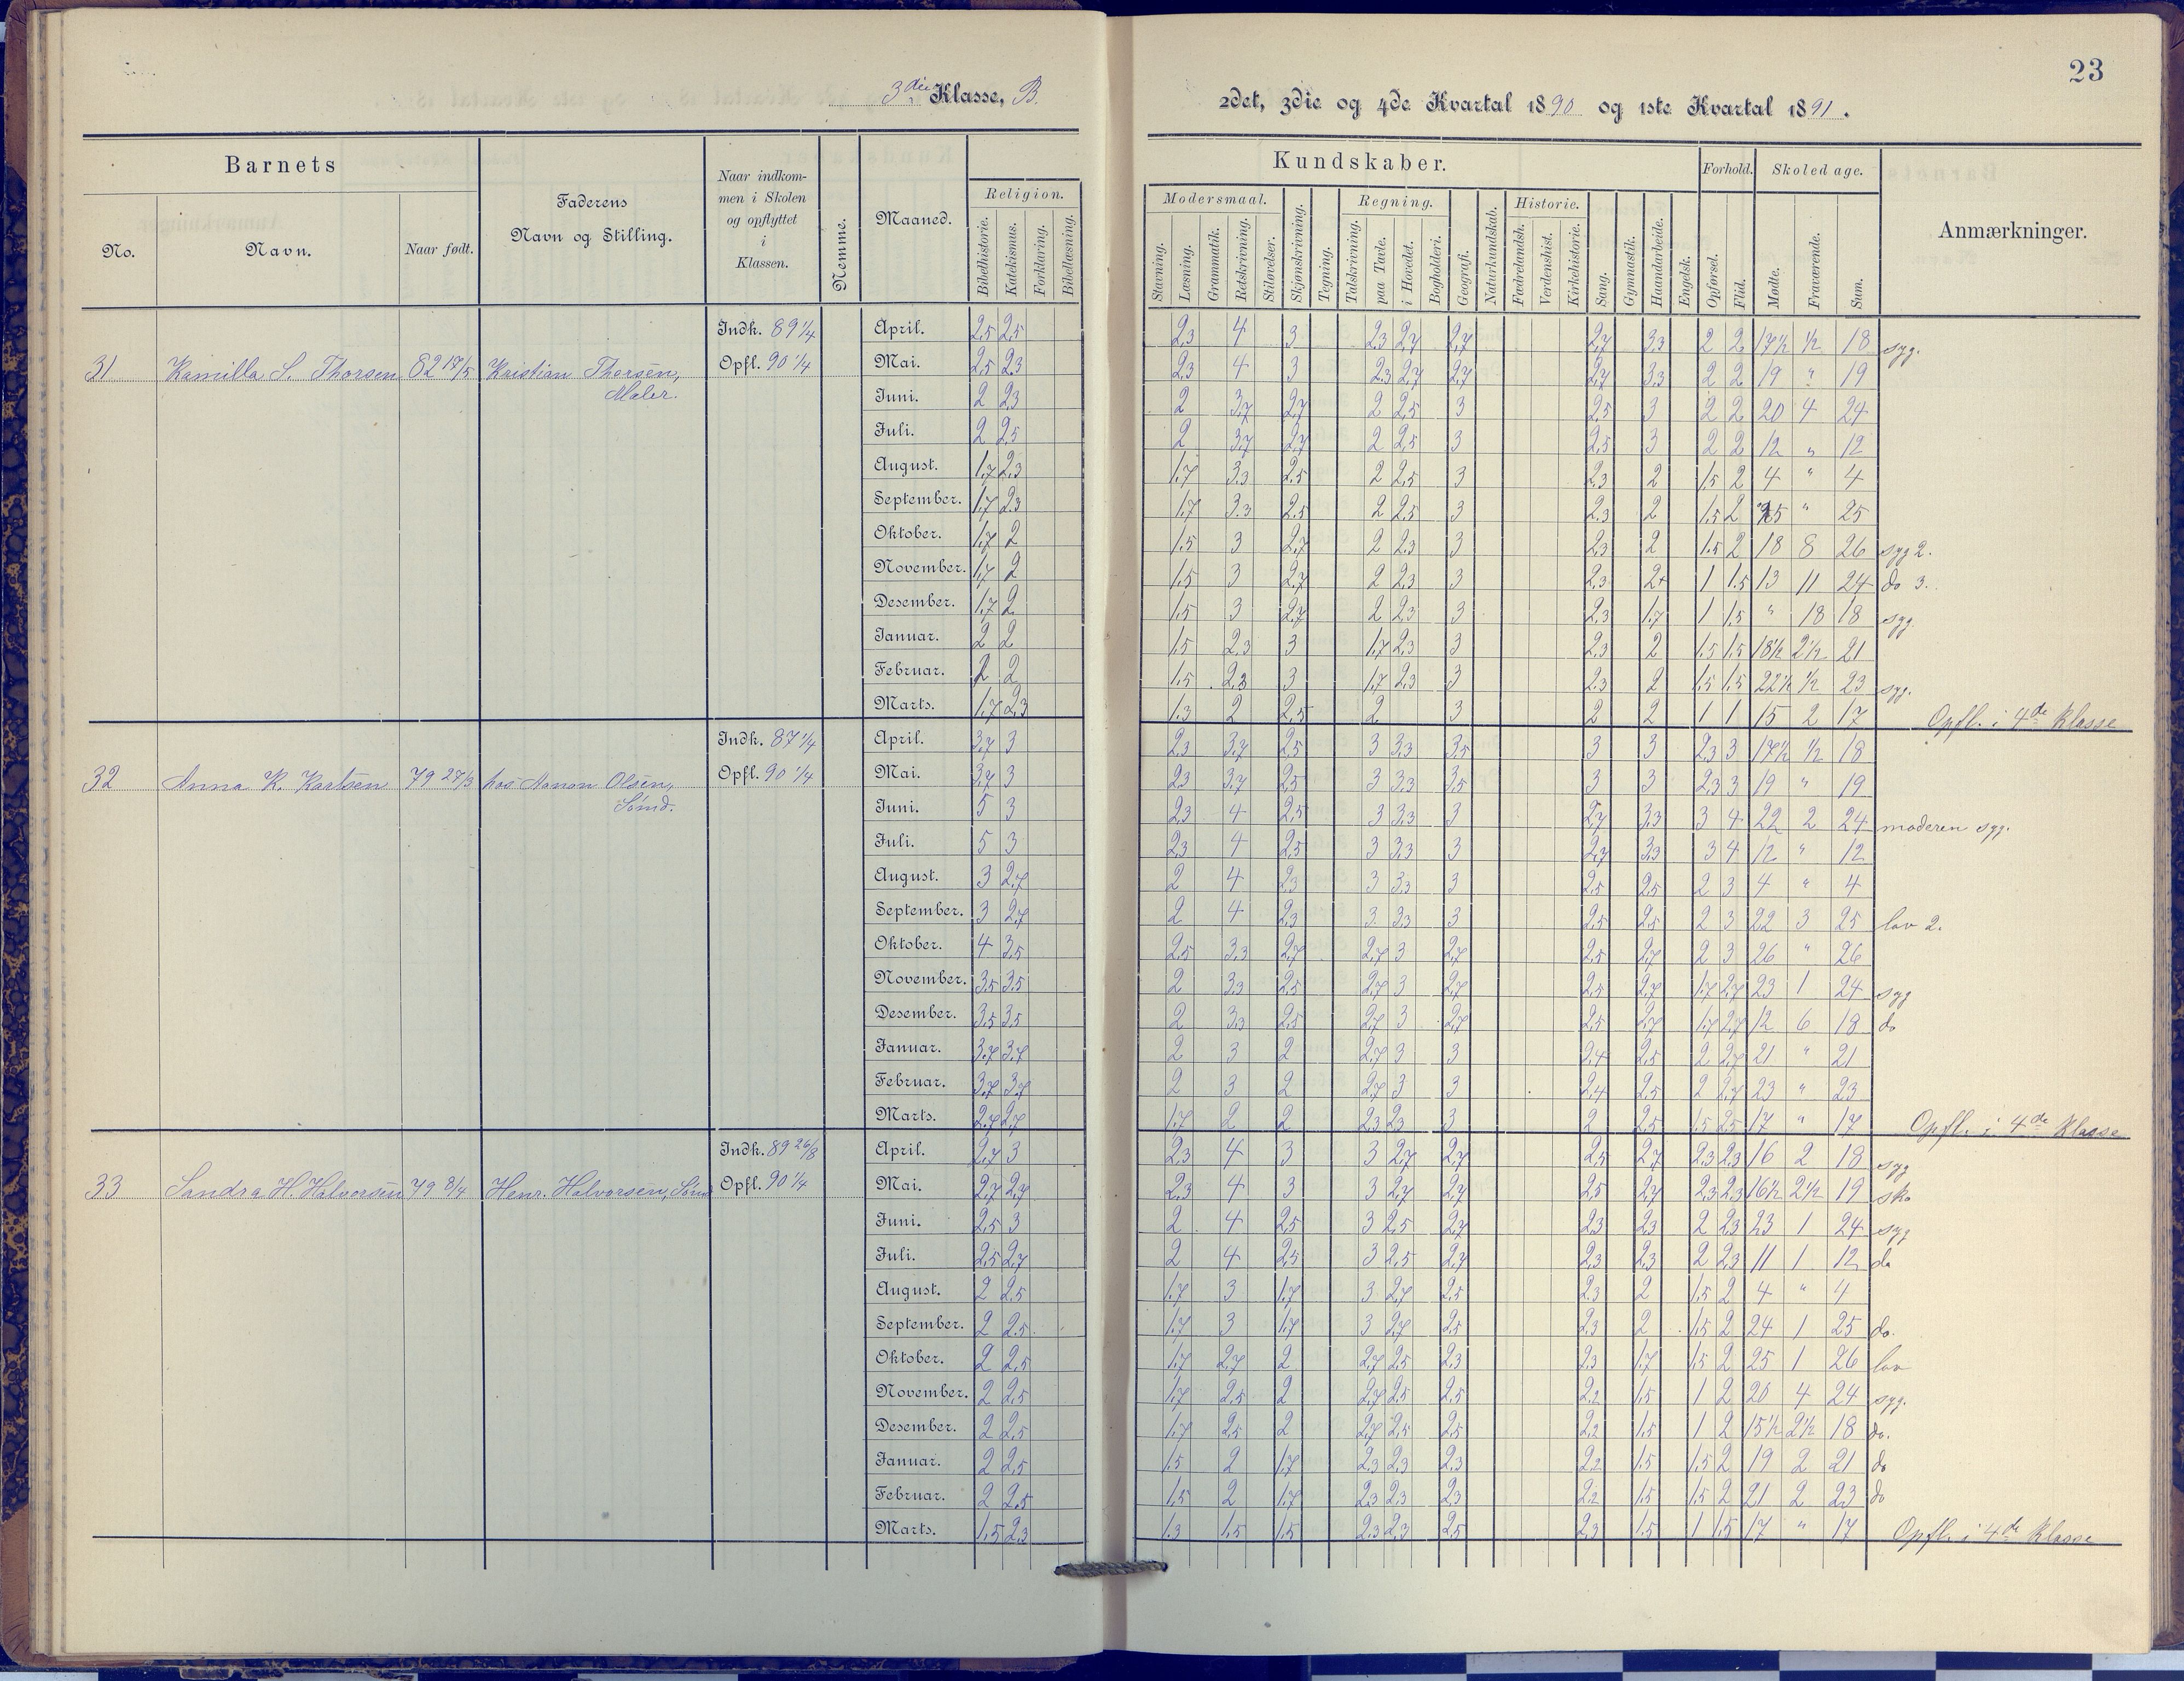 23
3die Klasse, B.
2det, 3die og 4de Kvartal 1890 og 1ste Kvartal 1891.
Barnets
Faderens
Navn og Stilling.
Naar indkom-
men i Skolen
og opflyttet
i
Klassen.
Nemme.
Maaned.
Religion.
No.
Navn.
Naar født.
Bibelhistorie.
Katekismus.
Forklaring.
Bibellæsning.
Kundskaber.
Forhold.
Skoledage.
Anmærkninger.
Modersmaal.
Regning.
Historie.
Stavning.
Læsning.
Grammatik.
Retskrivning.
Stiløvelser.
Skjønskrivning.
Tegning.
Talskrivning.
paa Tavle.
i Hovedet.
Bogholderi.
Geografi.
Naturkundskab.
Fædrelandsh.
Verdenshist.
Kirkehistorie.
Sang.
Gymnastik.
Haandarbeide.
Engelsk.
Opførsel.
Flid.
Mødte.
Fraværende.
Sum.
31 Kamilla S. Thorsen 82 17/5 Kristian Thorsen,
Maler.
Indk. 89 1/4
Opfl. 90 1/4
April. 2,5 2,5 2,3 4 3 2,3 2,7 2,7 2,7 3,3 2 2 17½ ½ 18 syg.
Mai. 2,5 2,3 2,3 4 3 2,3 2,7 2,7 2,7 3,3 2 2 19 " 19
Juni. 2 2,3 2 3,7 2,7 2 2,5 3 2,5 3 2 2 20 4 24
Juli. 2 2,5 2 3,7 2,7 2 2,5 3 2,5 3 2 2 12 " 12
August. 1,7 2,3 1,7 3,3 2,5 2 2,5 3 2,3 2 1,5 2 4 " 4
September. 1,7 2,3 1,7 3,3 2,5 2 2,5 3 2,3 2 1,5 2 25 " 25
Oktober. 1,7 2 1,5 3 2,7 2 2,3 3 2,3 2 1,5 2 18 8 26 syg 2.
November. 1,7 2 1,5 3 2,7 2 2,3 3 2,3 2+ 1 1,5 13 11 24 do 3.
Desember. 1,7 2 1,5 3 2,7 2 2,3 3 2,3 1,7 1 1,5 " 18 18 syg.
Januar. 2 2 1,5 2,3 3 1,7 2,3 3 2,3 2 1,5 1,5 18½ 2½ 21
Februar. 2 2 1,5 2,3 3 1,7 2,3 3 2,3 2 1,5 1,5 22½ ½ 23 syg.
Marts. 1,7 2,3 1,3 2 2,5 2 3 2 2 1 1 15 2 17 Opfl. i 4de Klasse
32 Anna K. Karlsen 79 27/3 hos Aanon Olsen,
Sømd.
Indk. 87 1/4
Opfl. 90 1/4
April. 3,7 3 2,3 3,7 2,5 3 3,3 3,5 3 3 2,3 3 17½ ½ 18
Mai. 3,7 3 2,3 3,7 2,5 3 3,3 3,5 3 3 2,3 3 19 " 19
Juni. 5 3 2,3 4 2,5 3 3,3 3 2,7 3,3 3 4 22 2 24 moderen syg.
Juli. 5 3 2,3 4 2,5 3 3,3 3 2,7 3,3 3 4 12 " 12
August. 3 2,7 2 4 2,3 3 3,3 3 2,5 2,5 2 3 4 " 4
September. 3 2,7 2 4 2,3 3 3,3 3 2,5 2,5 2 3 22 3 25 lov 2.
Oktober. 4 3,5 2,5 3,3 2,7 2,7 3 2,7 2,5 2,7 2 3 26 " 26
November. 3,5 3,5 2 3,3 2,5 2,7 3 2,7 2,5 2,7 1,7 2,7 23 1 24 syg
Desember. 3,5 3,5 2 3,3 2,5 2,7 3 2,7 2,5 2,7 1,7 2,7 12 6 18 do
Januar. 3,7 3,7 2 3 2 2,7 3 3 2,4 2,5 2 2,7 21 " 21
Februar. 3,7 3,7 2 3 2 2,7 3 3 2,4 2,5 2 2,7 23 " 23
Marts. 2,7 2,7 1,7 2 2 2,3 2,3 3 2 2,5 1,5 2,5 17 " 17 Opfl. i 4de Klasse
33 Sandra H. Halvorsen 79 8/4 Henr. Halvorsen, Sømd
Indk. 89 26/8
Opfl. 90 1/4
April. 2,7 3 2,3 4 3 3 2,7 2,7 2,5 2,7 2,3 2,3 16 2 18 syg
Mai. 2,7 2,7 2,3 4 3 3 2,7 2,7 2,5 2,7 2,3 2,3 16½ 2½ 19 sko
Juni. 2,5 3 2 4 2,5 3 2,5 2,7 2,3 2,3 2 2,3 23 1 24 syg
Juli. 2,5 2,7 2 4 2,5 3 2,5 2,7 2,3 2,3 2 2,3 11 1 12 do
August. 2 2,5 1,7 3 1,7 3 2,7 2,5 2,3 2 1,5 2 4 " 4
September. 2 2,5 1,7 3 1,7 3 2,7 2,5 2,3 2 1,5 2 24 1 25 do.
Oktober. 2 2,5 1,7 2,7 2 2,7 2,5 2,3 2,3 1,7 1,5 2 25 1 26 lov
November. 2 2,5 1,7 2,5 2 2,7 2,5 2,5 2,2 1,5 1 2 20 4 24 syg.
Desember. 2 2,5 1,7 2,5 2 2,7 2,5 2,5 2,2 1,5 1 2 15½ 2½ 18 do.
Januar. 2 2,5 1,5 2 1,7 2,3 2,3 2,3 2,2 1,5 1,5 2 19 2 21 do
Februar. 2 2,5 1,5 2 1,7 2,3 2,3 2,3 2,2 1,5 1,5 2 21 2 23 do
Marts. 1,5 2,3 1,3 1,5 1,5 2,3 2,3 2,5 2,3 1,5 1 1,5 17 " 17 Opfl. i 4de Klasse